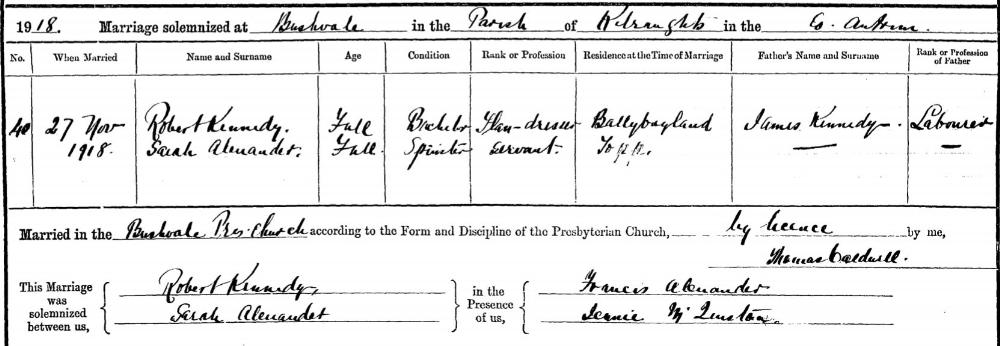 1918. Marriage solemnized at Bushvale in the Parish of Kilraughts in the Co. Antrim.
No. When Married Name and Surname Age Condition Rank or Profession Residence at the Time of Marriage Father's Name and Surname Rank or Profession of Father
40 27 Nov Robert Kennedy. Full Bachelor Flax-dresser Ballyboyland James Kennedy. Labourer
1918. Sarah Alexander. Full. Spinster servant. — —
Married in the Bushvale Pres. Church according to the Form and Discipline of the Presbyterian Church, by licence by me,
Thomas Caldwell.
This Marriage was solemnized between us,
Robert Kennedy
Sarah Alexander
in the Presence of us,
Francis Alexander
Jennie